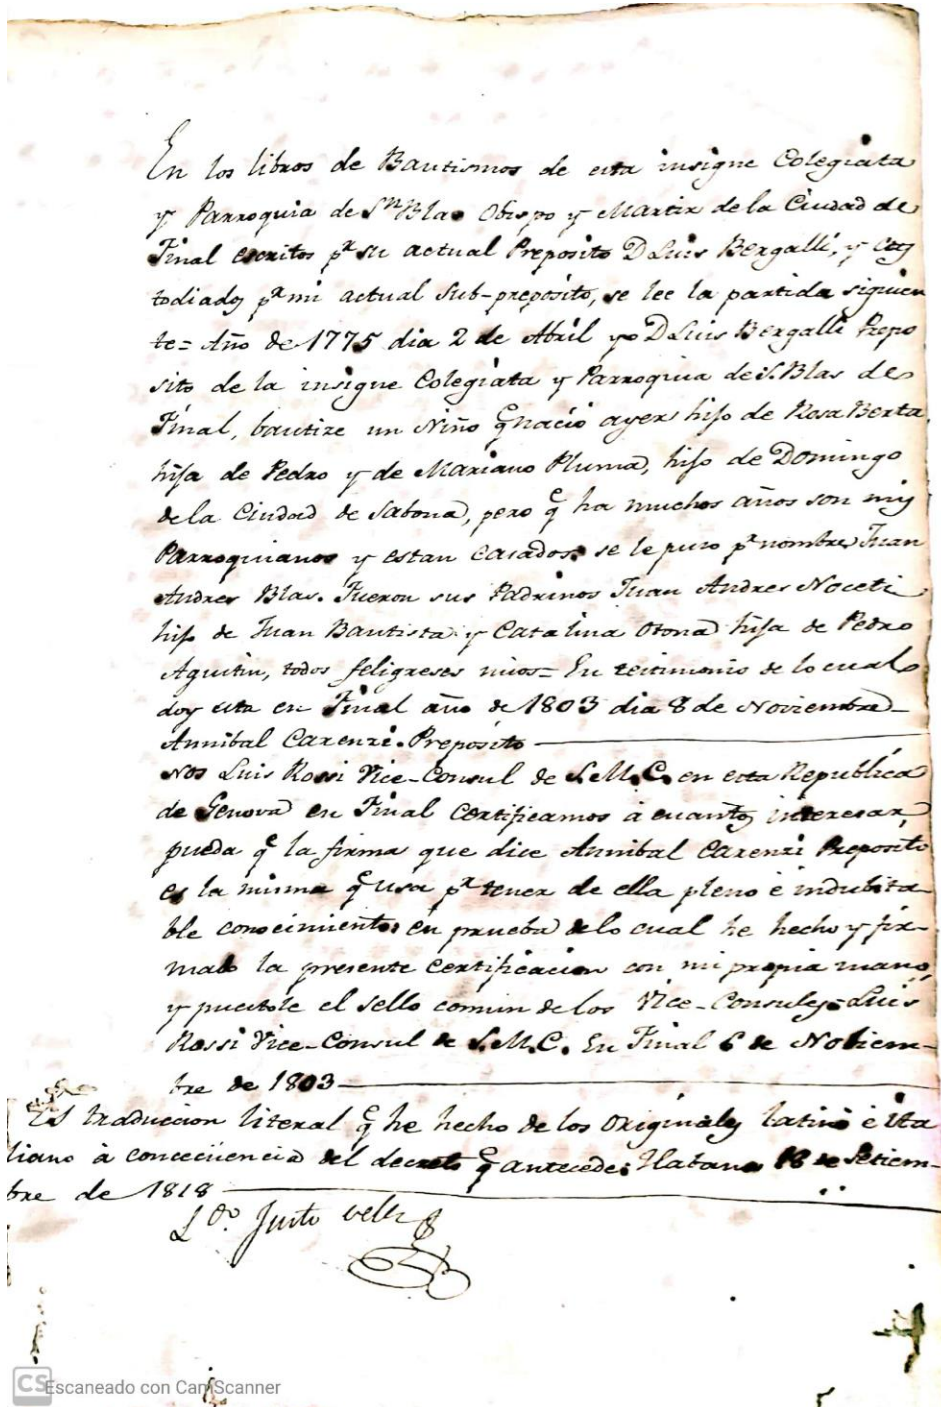 En los libros de Bautismos de esta insigne Colegiata
y Parroquia de Sn Blas Obispo y Martir de la Ciudad de
Final escritos pr. su actual Preposito D Luis Bergalli, y cus
todiados pr. mi actual Sub-preposito, se lee la partida siguien
te= Año de 1775 dia 2 de Abril yo D Luis Bergalli Prepo
sito de la insigne Colegiata y Parroquia de S. Blas de
Final, bautize un Niño q nació ayer hijo de Rosa Berta,
hija de Pedro y de Mariano Pluma, hijo de Domingo
de la Ciudad de Sabona, pero q ha muchos años son mis
Parroquianos y estan casados. se le puso pr. nombre Juan
Andres Blas. Fueron sus Padrinos Juan Andres Noceti
hijo de Juan Bautista y Catalina Otona hija de Pedro
Agustin, todos feligreses mios= En testimonio de lo cual
doy esta en Final año de 1803 dia 8 de Noviembre
Annibal Carenzi. Preposito
Nos Luis Rossi Vice-Consul de S.M.C. en esta Republica
de Genova en Final certificamos á cuantos interesar
pueda q la firma que dice Annibal Carenzi Preposito
es la misma q usa pr. tener de ella pleno é indubita
ble conocimiento; en prueba de lo cual he hecho y fir-
mado la presente certificacion con mi propia mano,
y puestole el sello comun de los Vice-Consules= Luis
Rossi Vice-Consul de S.M.C. En Final 6 de Nobiem-
bre de 1803
Es traduccion literal q he hecho de los originales latino é Ita
liano á consecuencia del decreto q antecede. Habana 18 de Setiem-
bre de 1818
Ldo. Justo Velez
CS Escaneado con CamScanner